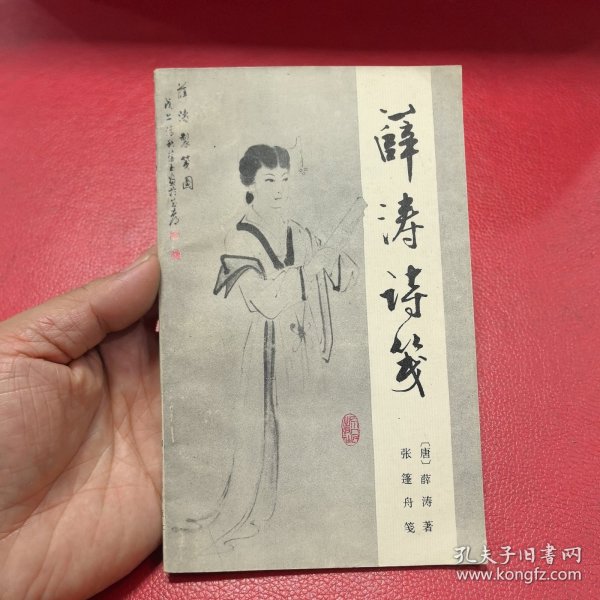 薛涛诗笺
〔唐〕薛涛著
张篷舟笺
薛涛製笺图
孔夫子旧书网
www.kongfz.com